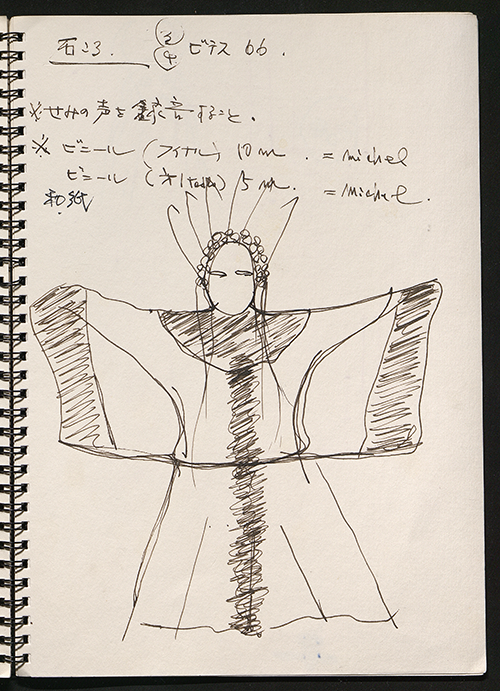 石ころ. ビテス 66.
※せみの声を録音すること.
※ ビニール (フィナル) 10m. = michel
ビニール 5m. = Michel.
和紙